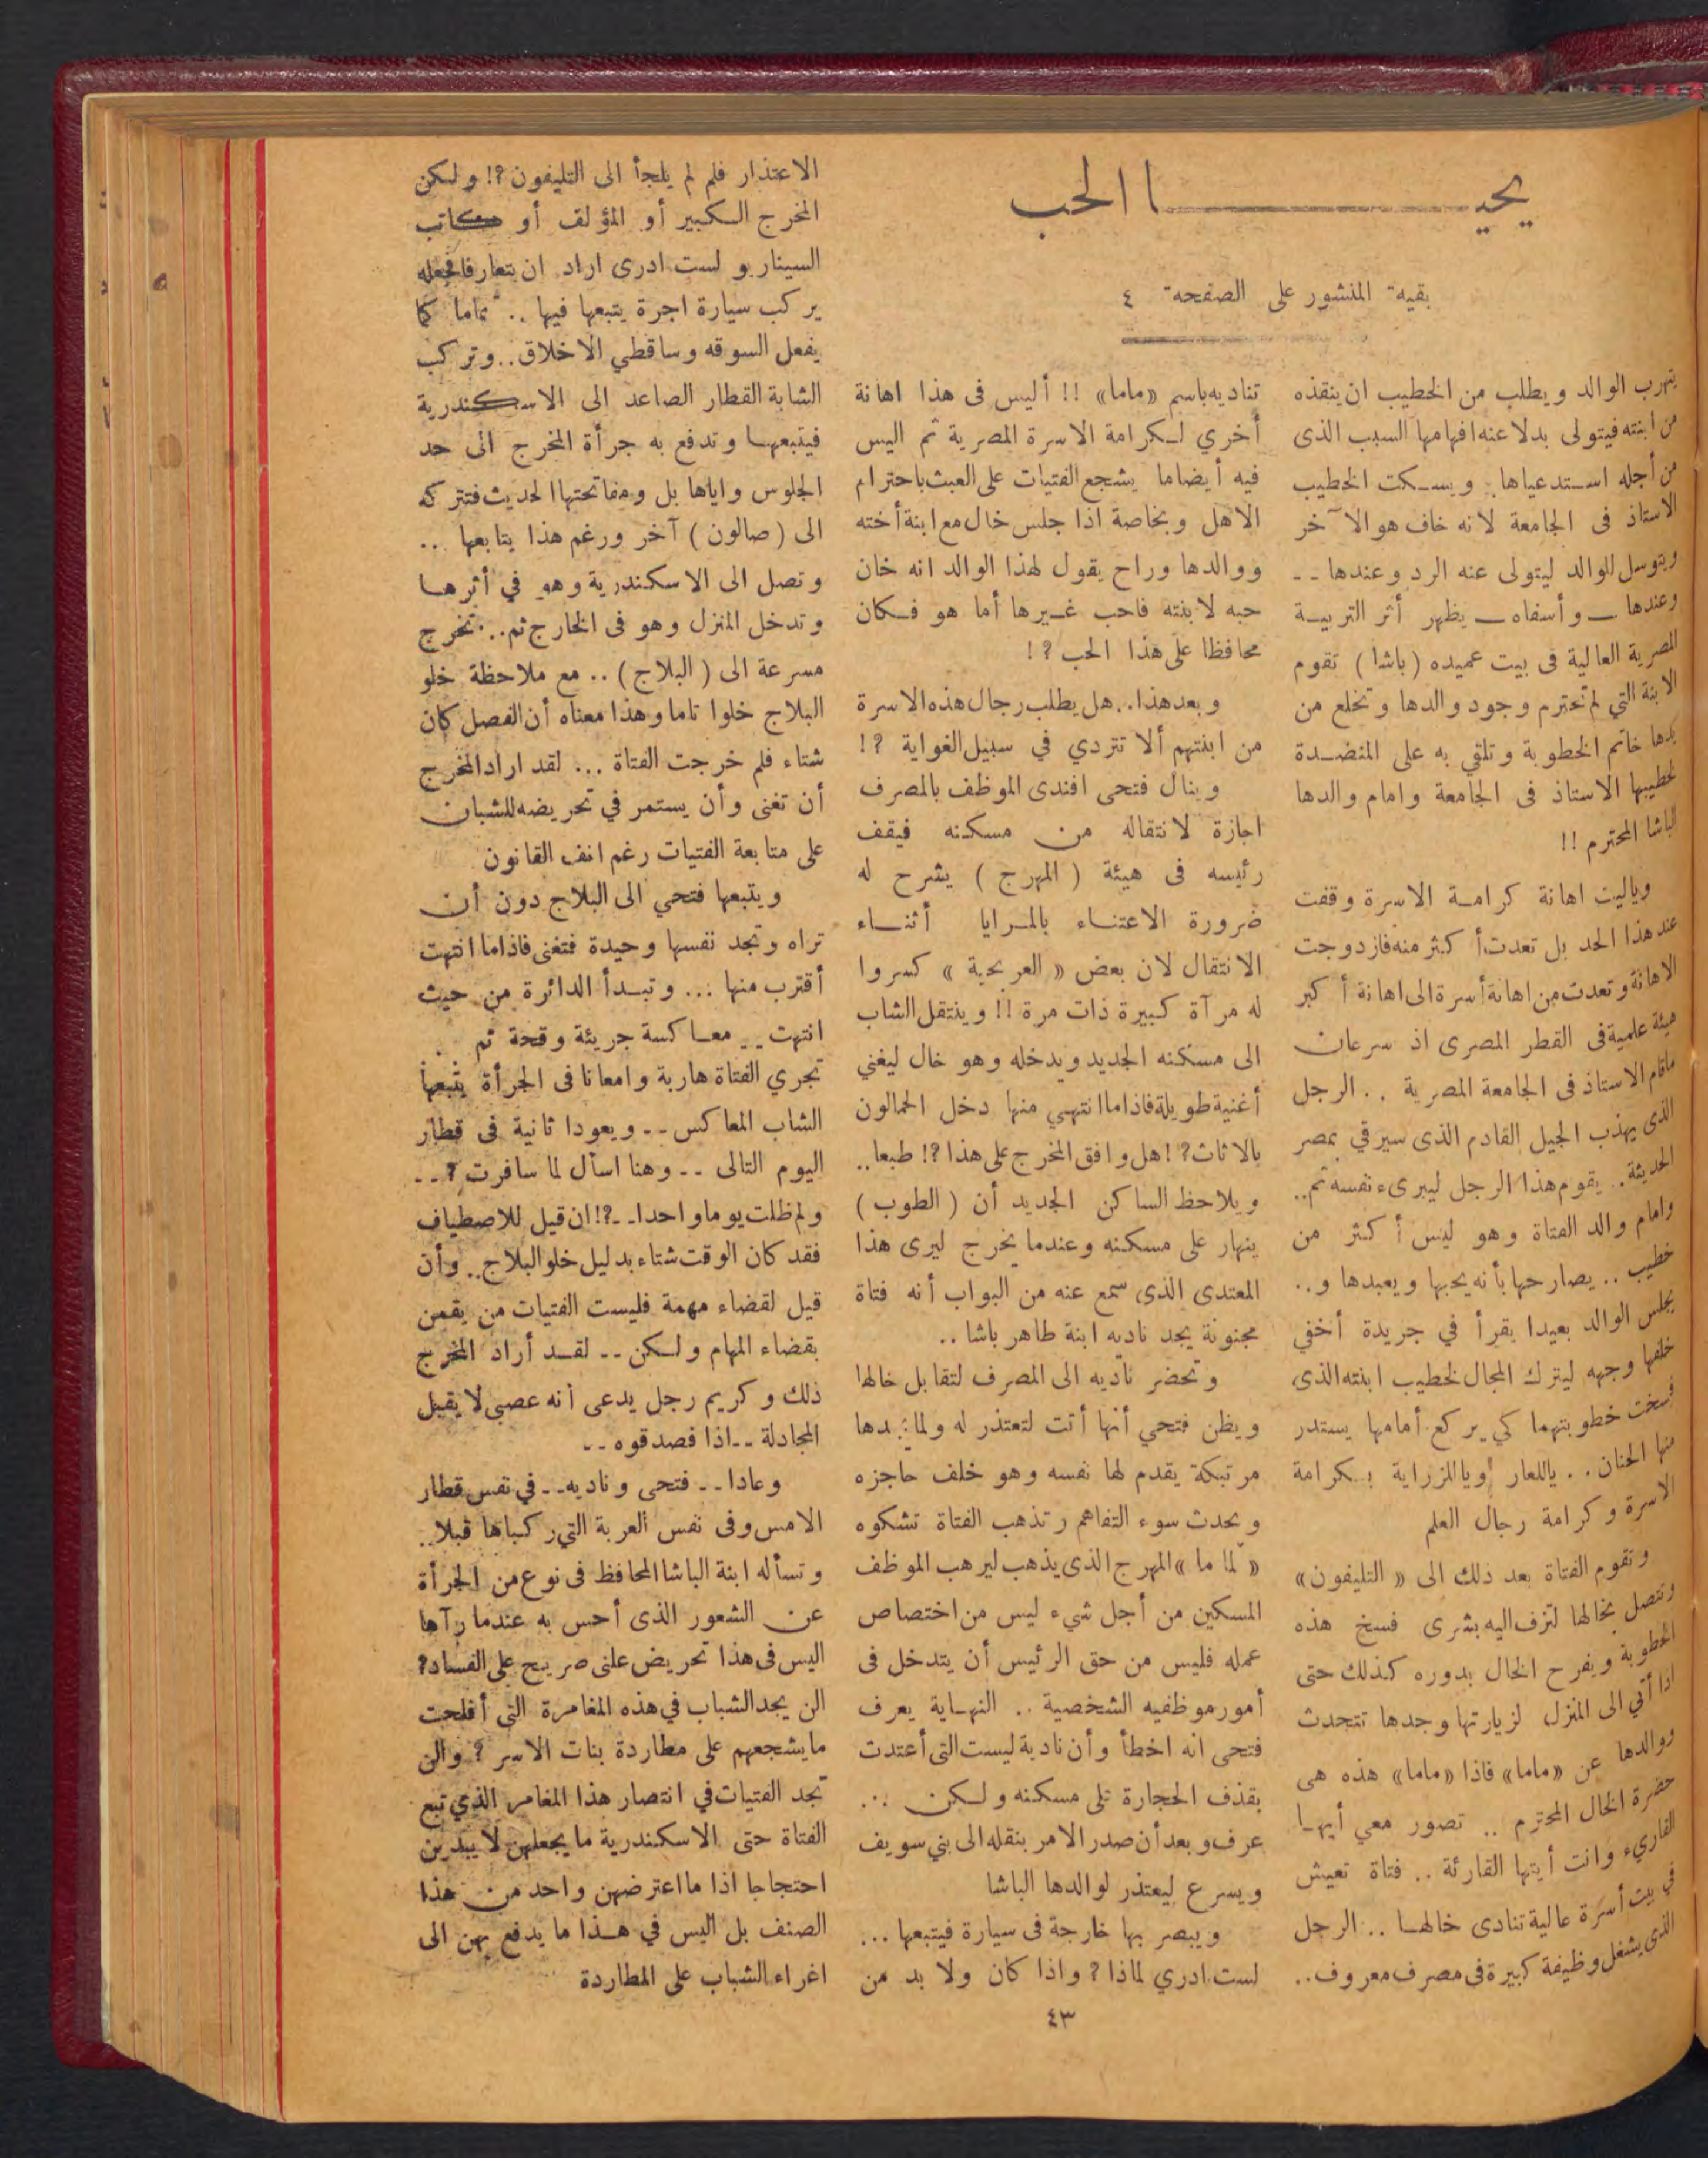 يحيــــــــــا الحب
بقية المنشور على الصفحة ٤
يتهرب الوالد ويطلب من الخطيب ان ينقذه
من ابنته فيتولى بدلا عنه افهامها السبب الذى
من أجله استدعياها .. ويسكت الخطيب
الاستاذ فى الجامعة لانه خاف هو الآخر
ويتوسل للوالد ليتولى عنه الرد وعندها --
وعندها — وأسفاه — يظهر أثر التربية
المصرية العالية فى بيت عميده (باشا) تقوم
الابنة التي لم تحترم وجود والدها وتخلع من
يدها خاتم الخطوبة وتلقي به على المنضدة
لخطيبها الاستاذ فى الجامعة وامام والدها
الباشا المحترم !!
وياليت اهانة كرامة الاسرة وقفت
عند هذا الحد بل تعدت أكثر منه فازدوجت
الاهانة وتعدت من اهانة أسرة الى اهانة أكبر
هيئة علمية فى القطر المصرى اذ سرعان
ماقام الاستاذ فى الجامعة المصرية .. الرجل
الذى يهذب الجيل القادم الذى سيرقي بمصر
الحديثة .. يقوم هذا الرجل ليبرىء نفسه ثم ..
وامام والد الفتاة وهو ليس أكثر من
خطيب .. يصارحها بأنه يحبها ويعبدها و ..
يجلس الوالد بعيدا يقرأ في جريدة أخفي
خلفها وجهه ليترك المجال لخطيب ابنته الذى
فسخت خطوبتهما كي يركع أمامها يستدر
منها الحنان .. ياللعار أو ياللزراية بكرامة
الاسرة وكرامة رجال العلم
وتقوم الفتاة بعد ذلك الى « التليفون »
وتتصل بخالها لتزف اليه بشرى فسخ هذه
الخطوبة ويفرح الخال بدوره كذلك حتى
اذا أتي الى المنزل لزيارتها وجدها تتحدث
ووالدها عن «ماما» فاذا «ماما» هذه هى
حضرة الخال المحترم .. تصور معي أيها
القاريء وانت أيتها القارئة .. فتاة تعيش
في بيت أسرة عالية تنادى خالها .. الرجل
الذى يشغل وظيفة كبيرة فى مصرف معروف ..
تناديه باسم «ماما» !! أليس فى هذا اهانة
أخري لكرامة الاسرة المصرية ثم اليس
فيه أيضاما يشجع الفتيات على العبث باحترام
الاهل وبخاصة اذا جلس خال مع ابنة أخته
ووالدها وراح يقول لهذا الوالد انه خان
حبه لابنته فاحب غيرها أما هو فكان
محافظا على هذا الحب ؟!
وبعد هذا .. هل يطلب رجال هذه الاسرة
من ابنتهم ألا تتردي في سبيل الغواية ؟!
وينال فتحى افندى الموظف بالمصرف
اجازة لانتقاله من مسكنه فيقف
رئيسه فى هيئة ( المهرج ) يشرح له
ضرورة الاعتناء بالمرايا أثناء
الانتقال لان بعض « العربجية » كسروا
له مرآة كبيرة ذات مرة !! وينتقل الشاب
الى مسكنه الجديد ويدخله وهو خال ليغني
أغنية طويلة فاذاما انتهي منها دخل الحمالون
بالاثاث ؟! هل وافق المخرج على هذا ؟! طبعا ..
ويلاحظ الساكن الجديد أن ( الطوب )
ينهار على مسكنه وعندما يخرج ليرى هذا
المعتدى الذى سمع عنه من البواب أنه فتاة
مجنونة يجد ناديه ابنة طاهر باشا ..
وتحضر ناديه الى المصرف لتقابل خالها
ويظن فتحي أنها أتت لتعتذر له ولما يجدها
مرتبكة يقدم لها نفسه وهو خلف حاجزه
ويحدث سوء التفاهم وتذهب الفتاة تشكوه
« لما ما » المهرج الذى يذهب ليرهب الموظف
المسكين من أجل شيء ليس من اختصاص
عمله فليس من حق الرئيس أن يتدخل فى
أمور موظفيه الشخصية .. النهاية يعرف
فتحى انه اخطأ وأن نادية ليست التى أعتدت
بقذف الحجارة على مسكنه ولكن ...
عرف وبعد أن صدر الامر بنقله الى بني سويف
ويسرع ليعتذر لوالدها الباشا
ويبصر بها خارجة فى سيارة فيتبعها ...
لست ادري لماذا ؟ واذا كان ولا بد من
الاعتذار فلم لم يلجأ الى التليفون ؟! ولكن
المخرج الكبير أو المؤلف أو كاتب
السيناريو لست ادرى اراد ان يتعارفا فجعله
يركب سيارة اجرة يتبعها فيها .. تماما كما
يفعل السوقه وساقطي الاخلاق .. وتركب
الشابة القطار الصاعد الى الاسكندرية
فيتبعها وتدفع به جرأة المخرج الى حد
الجلوس واياها بل ومفاتحتها الحديث فتتركه
الى ( صالون ) آخر ورغم هذا يتابعها ..
وتصل الى الاسكندرية وهو في أثرها
وتدخل المنزل وهو فى الخارج ثم .. تخرج
مسرعة الى ( البلاج ) .. مع ملاحظة خلو
البلاج خلوا تاما وهذا معناه أن الفصل كان
شتاء فلم خرجت الفتاة ... لقد اراد المخرج
أن تغنى وأن يستمر في تحريضه للشبان
على متابعة الفتيات رغم انف القانون
ويتبعها فتحي الى البلاج دون أن
تراه وتجد نفسها وحيدة فتغنى فاذاما انتهت
أقترب منها ... وتبدأ الدائرة من حيث
انتهت .. معاكسة جريئة وقحة ثم
تجري الفتاة هاربة وامعانا فى الجرأة يتبعها
الشاب المعاكس -- ويعودا ثانية فى قطار
اليوم التالى -- وهنا اسأل لما سافرت ؟ --
ولم ظلت يوما واحدا -- ؟! ان قيل للاصطياف
فقد كان الوقت شتاء بدليل خلو البلاج .. وأن
قيل لقضاء مهمة فليست الفتيات من يقمن
بقضاء المهام ولكن -- لقد أراد المخرج
ذلك وكريم رجل يدعى أنه عصبى لا يقبل
المجادلة -- اذا فصدقوه --
وعادا -- فتحى وناديه -- في نفس قطار
الامس وفى نفس العربة التي ركباها قبلا ..
وتسأله ابنة الباشا المحافظ فى نوع من الجرأة
عن الشعور الذى أحس به عندما رآها
اليس فى هذا تحريض علنى صريح على الفساد ؟
الن يجد الشباب في هذه المغامرة التى أفلحت
مايشجعهم على مطاردة بنات الاسر ؟ والن
تجد الفتيات في انتصار هذا المغامر الذي تبع
الفتاة حتى الاسكندرية ما يجعلهن لا يبدين
احتجاجا اذا ما اعترضهن واحد من هذا
الصنف بل اليس في هذا ما يدفع بهن الى
اغراء الشباب على المطاردة
٤٣